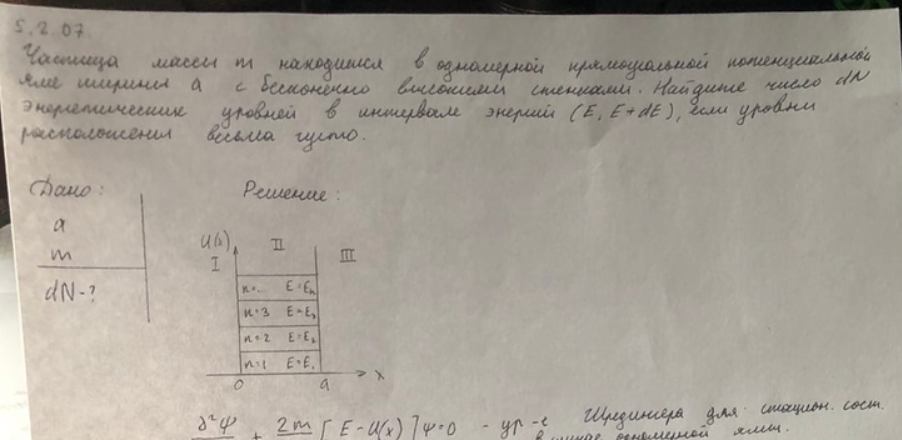 5.2.07.
Частица массы m находится в одномерной прямоугольной потенциальной
яме ширины a с бесконечно высокими стенками. Найдите число dN
энергетических уровней в интервале энергий (E, E+dE), если уровни
расположены весьма густо.
Дано:
a
m
dN-?
Решение:
U(x)
I
II
III
n=... E=Eₙ
n=3 E=E₃
n=2 E=E₂
n=1 E=E₁
0 a x
∂²Ψ + 2m [E-U(x)]Ψ=0 - ур-е Шредингера для стацион. сост.
в случае одномерной ямы.